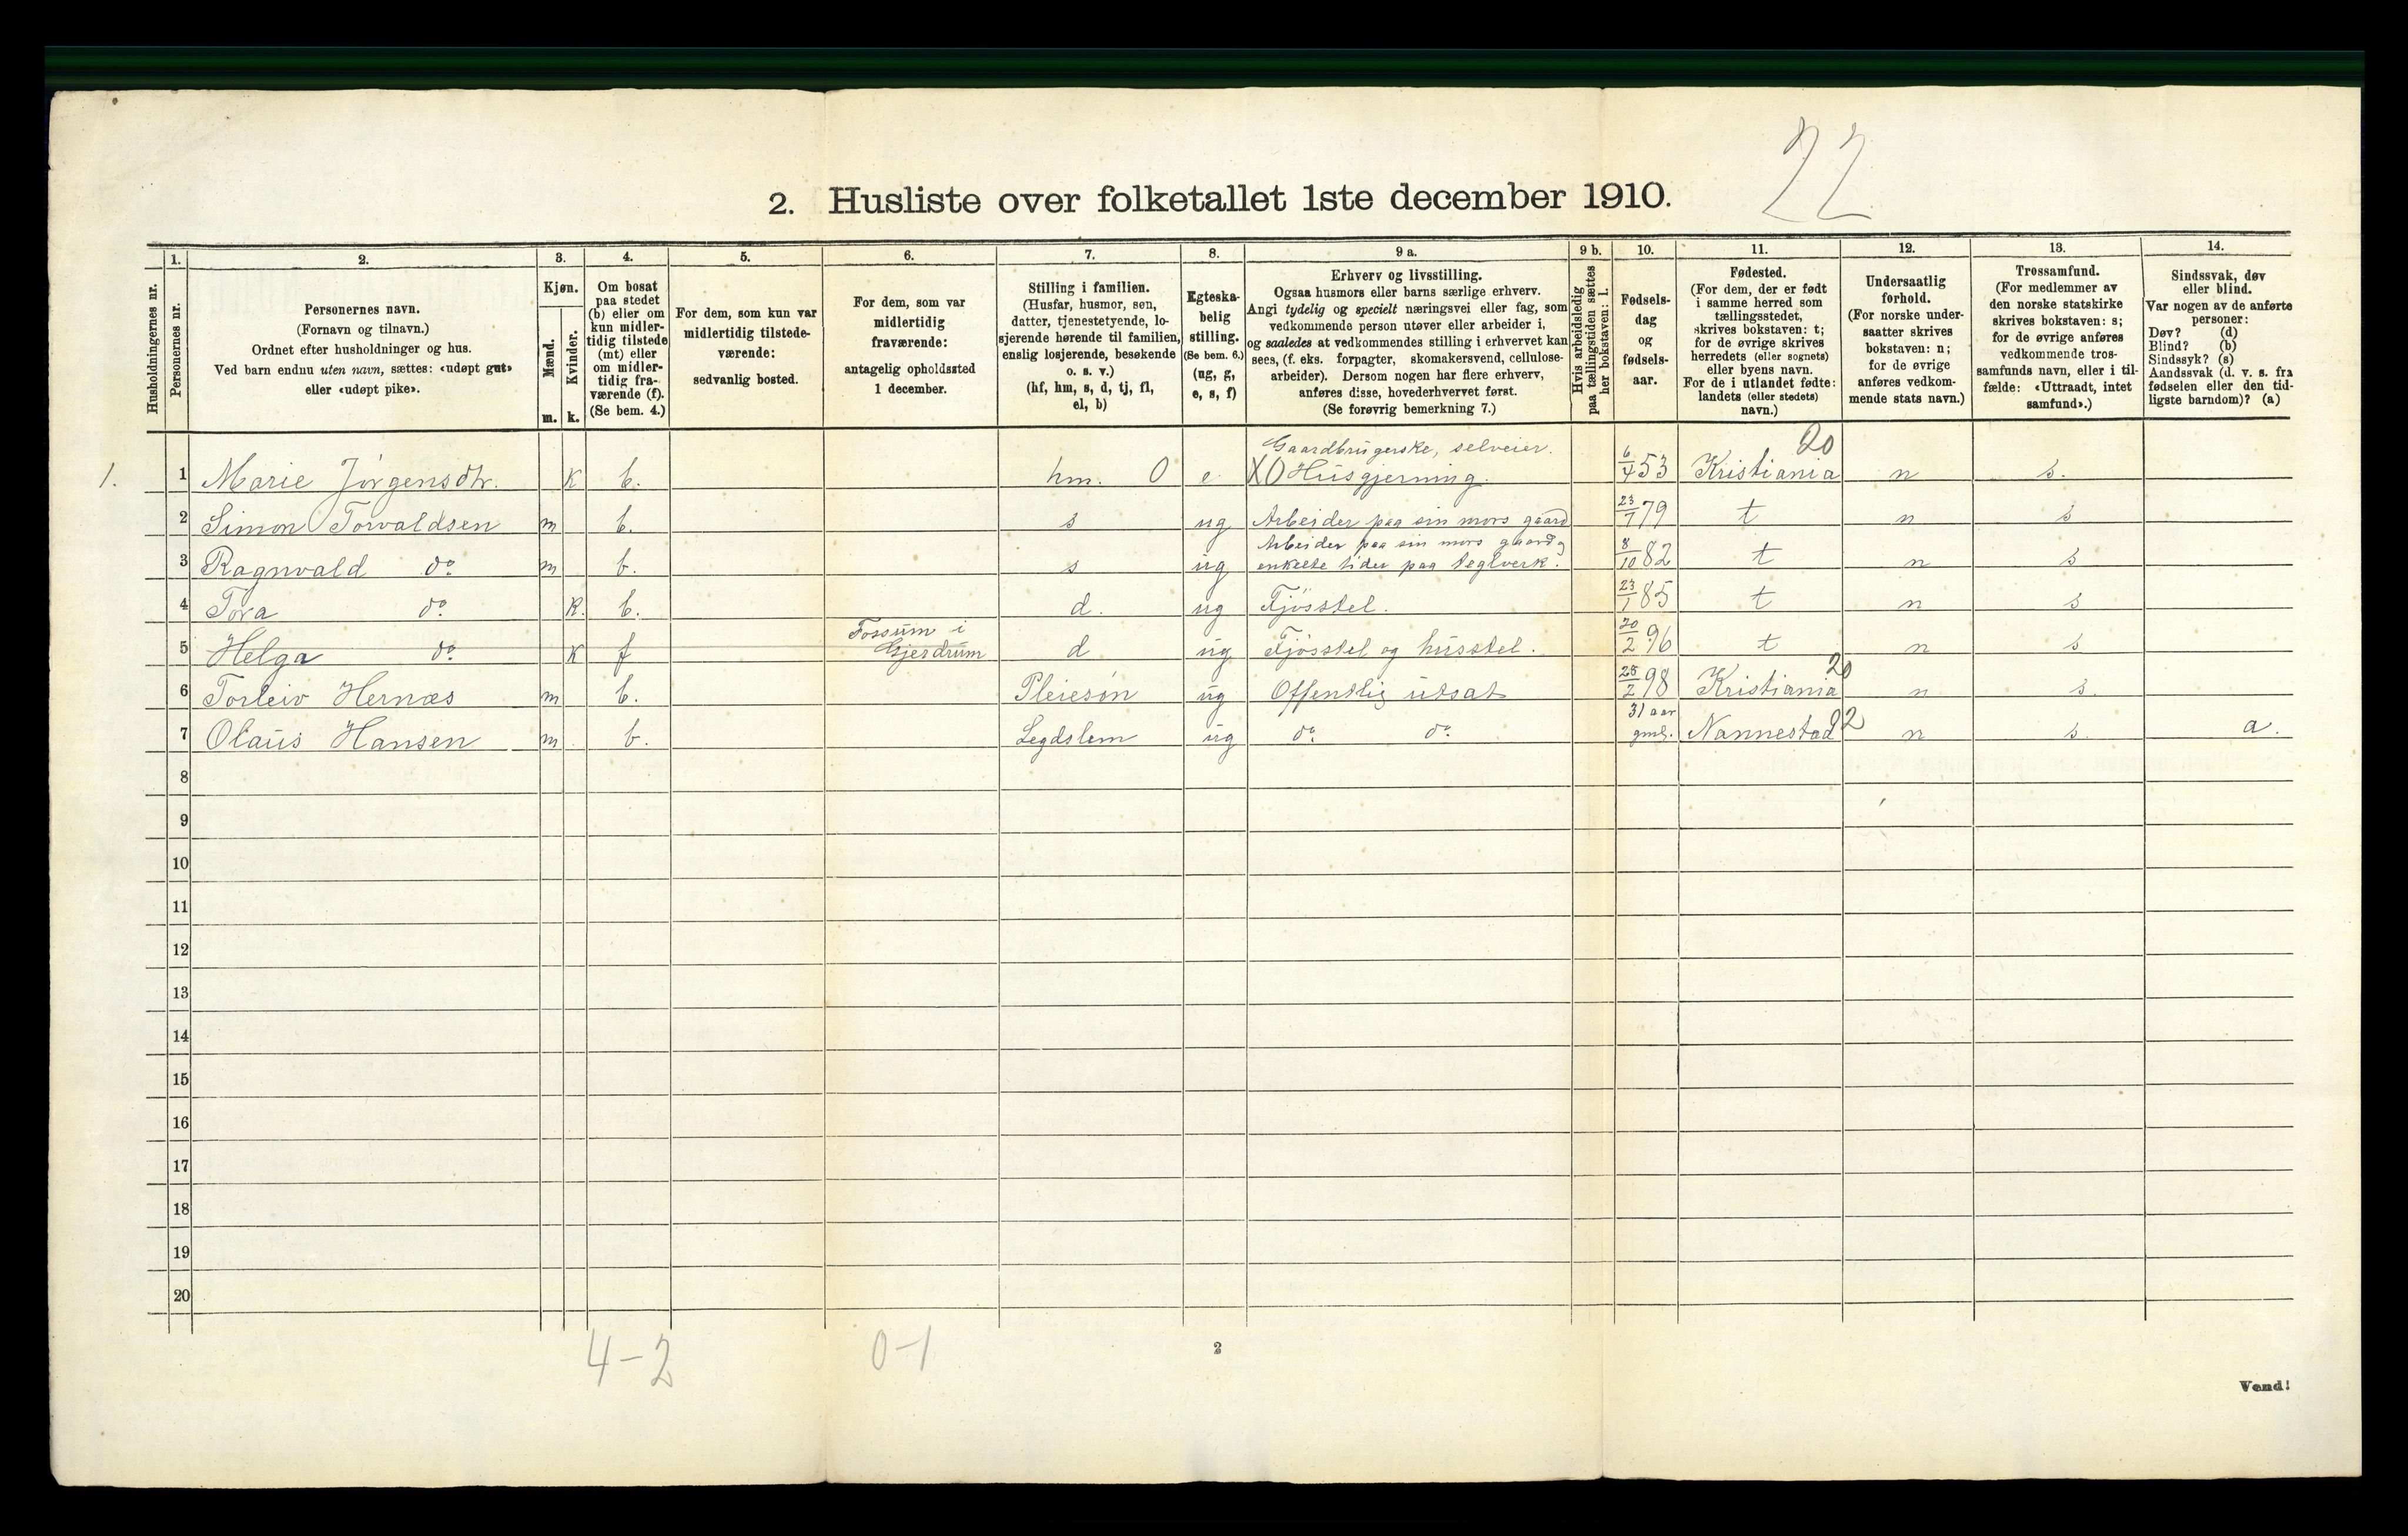 22
2. Husliste over folketallet 1ste december 1910.
Husholdningernes nr.
1.
Personernes nr.
2.
Personernes navn.
(Fornavn og tilnavn.)
Ordnet efter husholdninger og hus.
Ved barn endnu uten navn, sættes: «udøpt gut»
eller «udøpt pike».
3.
Kjøn.
Mænd.
m.
Kvinder.
k.
4.
Om bosat
paa stedet
(b) eller om
kun midler-
tidig tilstede
(mt) eller
om midler-
tidig fra-
værende (f).
(Se bem. 4.)
5.
For dem, som kun var
midlertidig tilstede-
værende:
sedvanlig bosted.
6.
For dem, som var
midlertidig
fraværende:
antagelig opholdssted
1 december.
7.
Stilling i familien.
(Husfar, husmor, søn,
datter, tjenestetyende, lo-
sjerende hørende til familien,
enslig losjerende, besøkende
o. s. v.)
(hf, hm, s, d, tj, fl,
el, b)
8.
Egteska-
belig
stilling.
(Se bem. 6.)
(ug, g,
e, s, f)
9 a.
Erhverv og livsstilling.
Ogsaa husmors eller barns særlige erhverv.
Angi tydelig og specielt næringsvei eller fag, som
vedkommende person utøver eller arbeider i,
og saaledes at vedkommendes stilling i erhvervet kan
sees, (f. eks. forpagter, skomakersvend, cellulose-
arbeider). Dersom nogen har flere erhverv,
anføres disse, hovederhvervet først.
(Se forøvrig bemerkning 7.)
9 b.
Hvis arbeidsledig
paa tællingstiden sættes
her bokstaven: l.
10.
Fødsels-
dag
og
fødsels-
aar.
11.
Fødested.
(For dem, der er født
i samme herred som
tællingsstedet,
skrives bokstaven: t;
for de øvrige skrives
herredets (eller sognets)
eller byens navn.
For de i utlandet fødte:
landets (eller stedets)
navn.)
12.
Undersaatlig
forhold.
(For norske under-
saatter skrives
bokstaven: n;
for de øvrige
anføres vedkom-
mende stats navn.)
13.
Trossamfund.
(For medlemmer av
den norske statskirke
skrives bokstaven: s;
for de øvrige anføres
vedkommende tros-
samfunds navn, eller i til-
fælde: «Uttraadt, intet
samfund».)
14.
Sindssvak, døv
eller blind.
Var nogen av de anførte
personer:
Døv? (d)
Blind? (b)
Sindssyk? (s)
Aandssvak (d. v. s. fra
fødselen eller den tid-
ligste barndom)? (a)
Gaardbrugerske, selveier. 20
1. 1 Marie Jörgensdtr. K b. hm. 0 e X0 Husgjerning. 6/4 53 Kristiania n s.
2 Simon Torvaldsen m b. s ug Arbeider paa sin mors gaard 23/1 79 t n s
Arbeider paa sin mors gaard og
3 Ragnvald do m b. s ug enkelte tider paa teglverk. 8/10 82 t n s
4 Tora do K. b. d. ug Fjösstel. 23/1 85 t n s
Fossum i
5 Helga do K f Gjerdrum d ug Fjösstel og husstel. 20/2 96 t n s
20
6 Torleiv Hernæs m b. Pleiesön ug Offentlig utsat 25/2 98 Kristiania n s.
31 aar
7 Olaus Hansen m b. Legdslem ug do do gml. Nannestad 92 n s. a.
8
9
10
11
12
13
14
15
16
17
18
19
20
4-2 0-1
2
Vend!